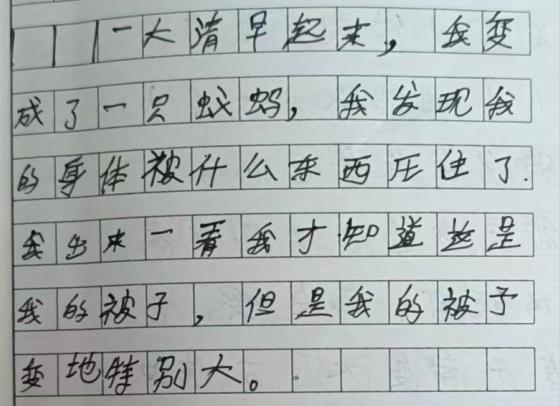 一大清早起来，我变
成了一只蚂蚁，我发现我
的身体被什么东西压住了.
我出来一看我才知道这是
我的被子，但是我的被子
变地特别大。